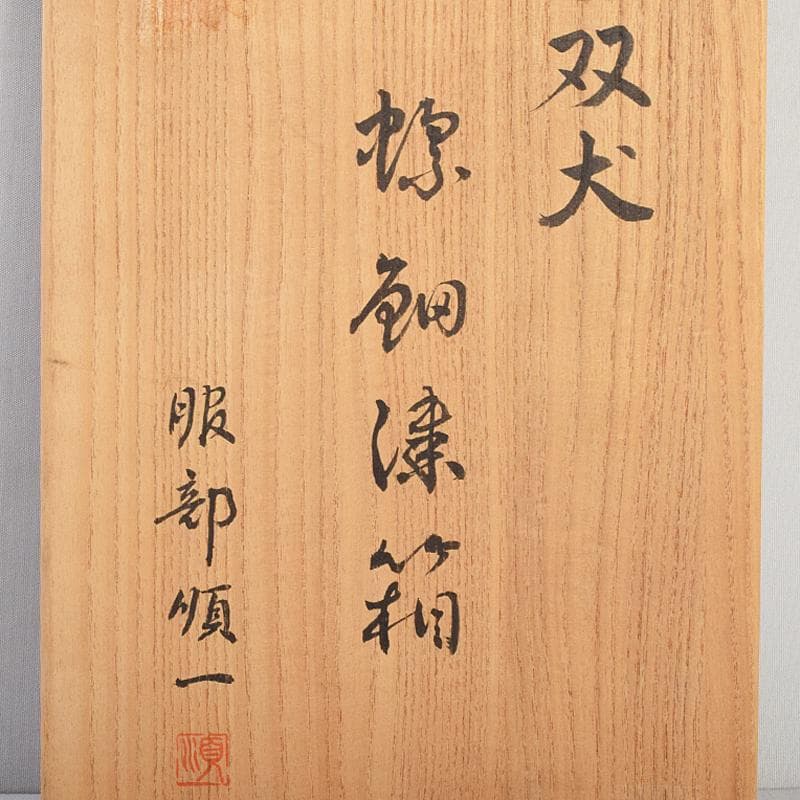 双犬
螺鈿漆箱
服部順一